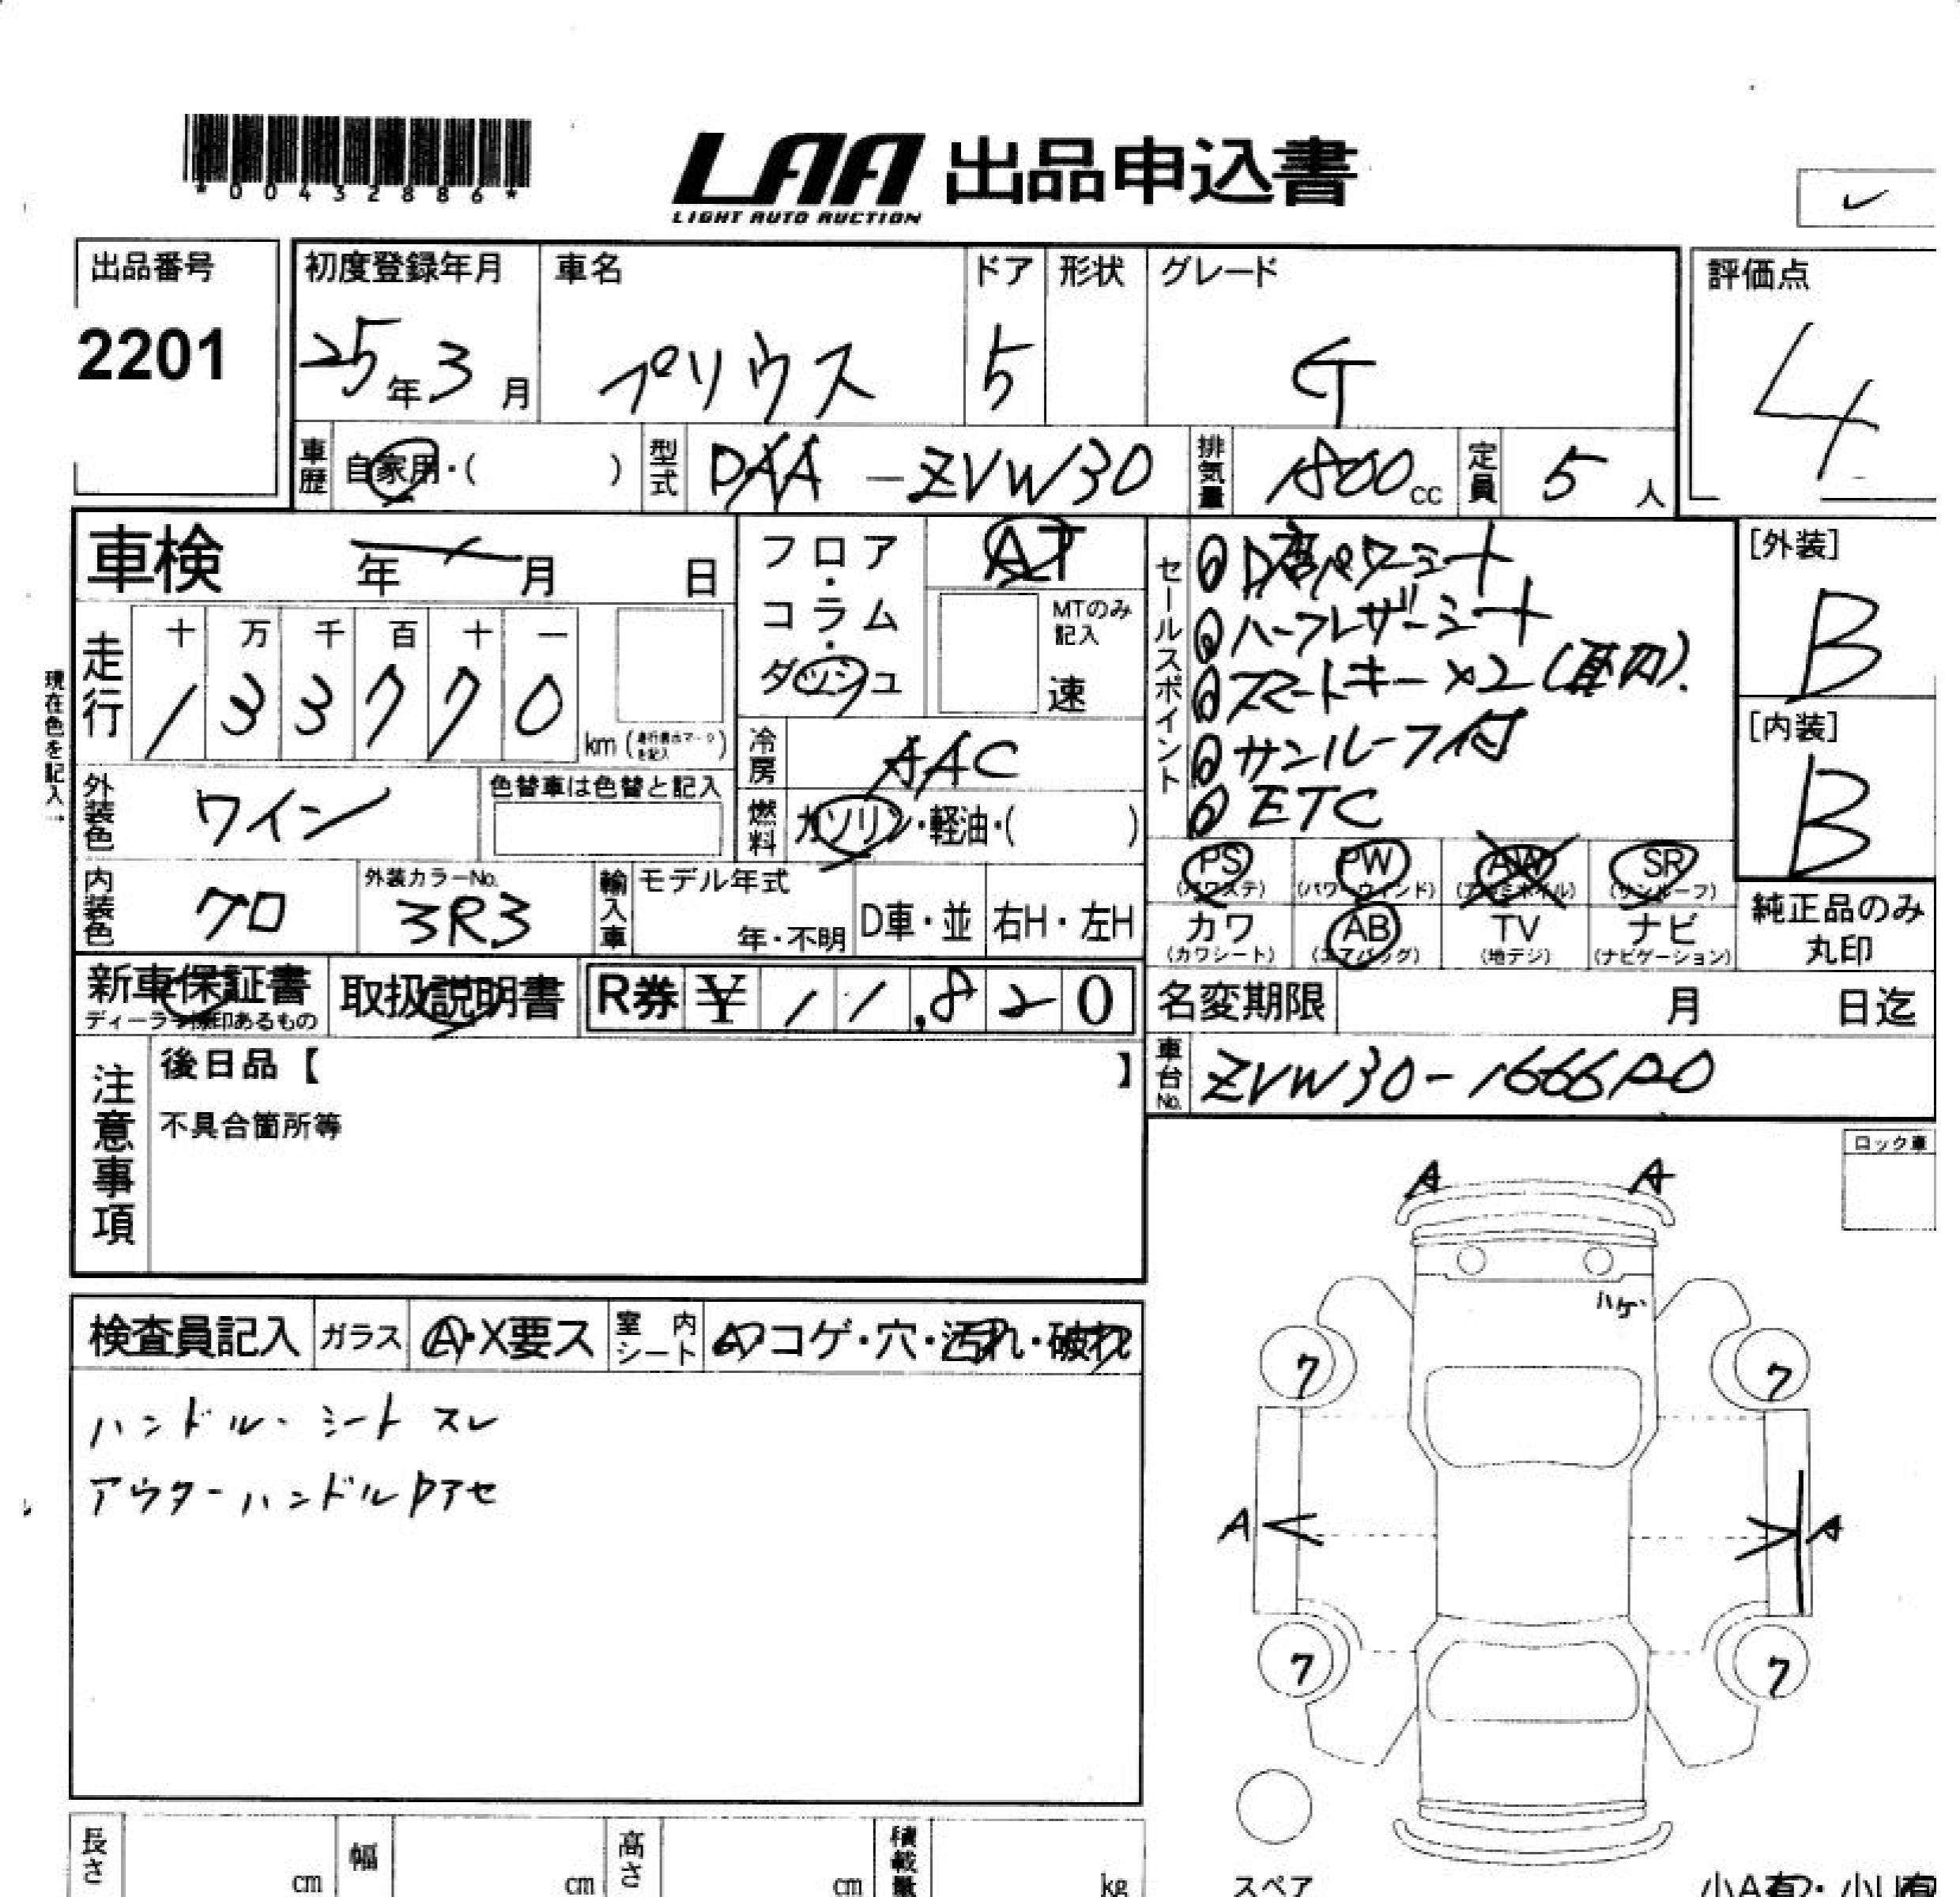 *00432886*
LAA 出品申込書
LIGHT AUTO AUCTION
出品番号
2201
初度登録年月 車名 ドア 形状 グレード 評価点
25年3月 プリウス 5 G 4
車歴 自家用・( ) 型式 DAA-ZVW30 排気量 1800cc 定員 5人
車検 年 月 日
フロア・コラム・ダッシュ
AT
MTのみ記入
速
セールスポイント
D席パワーシート
ハーフレザーシート
スマートキー×2
サンルーフ付
ETC
[外装]
B
[内装]
B
現在色を記入→
走行 十 万 千 百 十 一
1 3 3 7 7 0 km
冷房 AAC
外装色 ワイン
色替車は色替と記入
燃料 ガソリン・軽油・( )
PS (パワステ) PW (パワーウィンド) AW (アルミホイル) SR (サンルーフ)
カワ (カワシート) AB (エアバッグ) TV (地デジ) ナビ (ナビゲーション)
純正品のみ
丸印
内装色 クロ
外装カラーNo.
3R3
輸入車 モデル年式
年・不明 D車・並 右H・左H
新車保証書
取扱説明書
R券 ¥ 11,820
名変期限 月 日迄
車台No. ZVW30-
注意事項
後日品【 】
不具合箇所等
ロック車
A A
ハゲ
検査員記入 ガラス A・X要ス 室内シート コゲ・穴・汚れ・破れ
ハンドル・シート スレ
アウターハンドル アセ
7 7
A A
7 7
スペア
長さ cm 幅 cm 高さ cm 積載量 kg